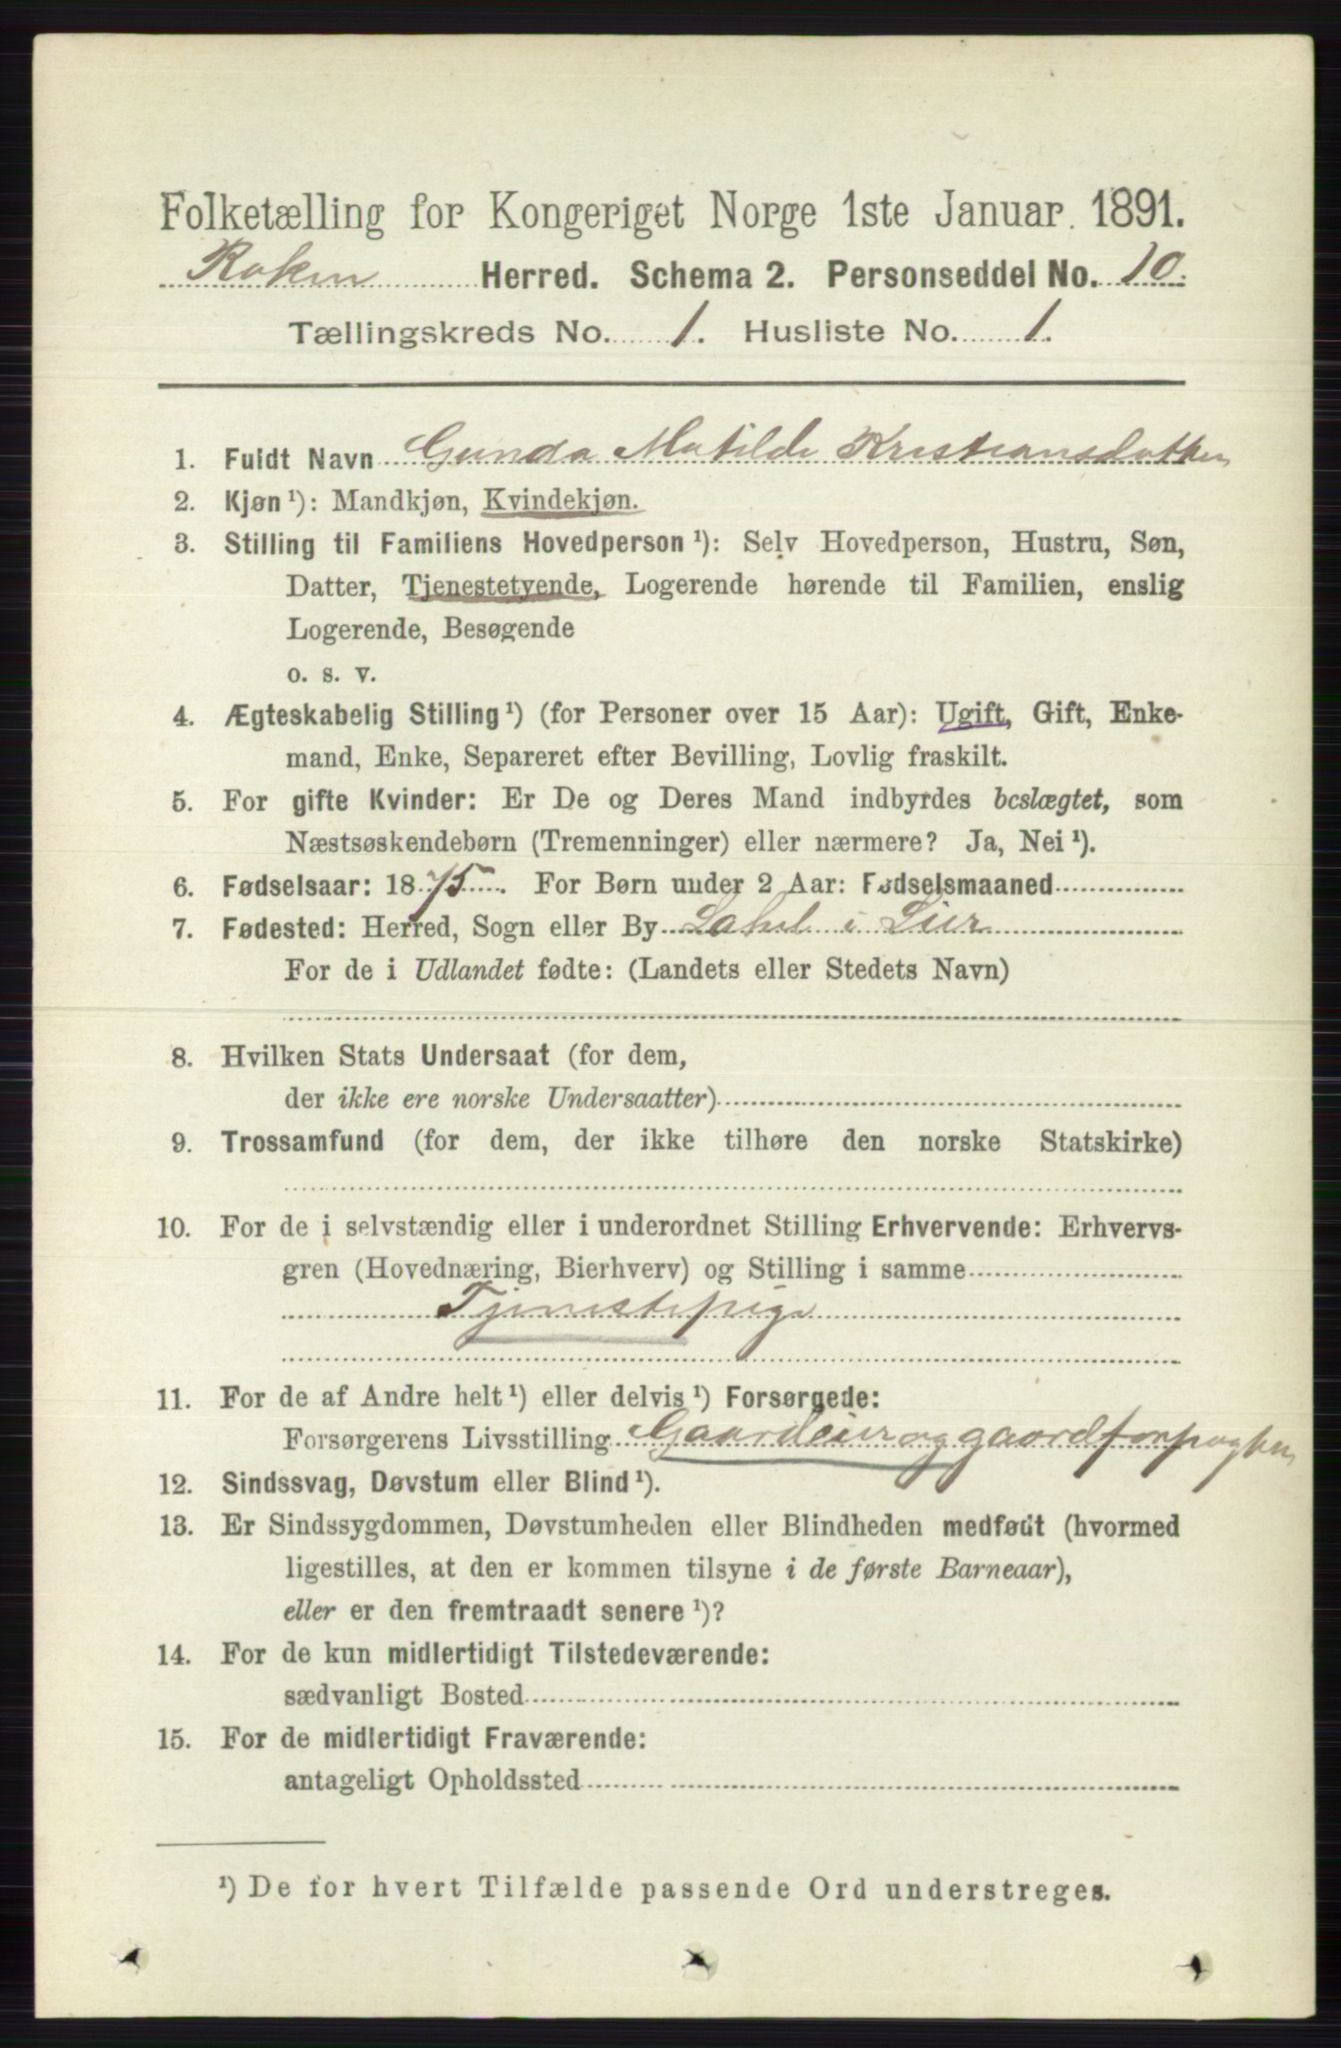 Folketælling for Kongeriget Norge 1ste Januar 1891.
Røken Herred. Schema 2. Personseddel No. 10.
Tællingskreds No. 1. Husliste No. 1.
1. Fuldt Navn Gunda Matilde Kristiansdatter
2. Kjøn¹): Mandkjøn, Kvindekjøn.
3. Stilling til Familiens Hovedperson¹): Selv Hovedperson, Hustru, Søn,
Datter, Tjenestetyende, Logerende hørende til Familien, enslig
Logerende, Besøgende
o. s. v.
4. Ægteskabelig Stilling¹) (for Personer over 15 Aar): Ugift, Gift, Enke-
mand, Enke, Separeret efter Bevilling, Lovlig fraskilt.
5. For gifte Kvinder: Er De og Deres Mand indbyrdes beslægtet, som
Næstsøskendebørn (Tremenninger) eller nærmere? Ja, Nei¹).
6. Fødselsaar: 1875. For Børn under 2 Aar: Fødselsmaaned
7. Fødested: Herred, Sogn eller By Lahel i Lier
For de i Udlandet fødte: (Landets eller Stedets Navn)
8. Hvilken Stats Undersaat (for dem,
der ikke ere norske Undersaatter)
9. Trossamfund (for dem, der ikke tilhøre den norske Statskirke)
10. For de i selvstændig eller i underordnet Stilling Erhvervende: Erhvervs-
gren (Hovednæring, Bierhverv) og Stilling i samme
Tjenestepige
11. For de af Andre helt¹) eller delvis¹) Forsørgede:
Forsørgerens Livsstilling Gaardeier og gaardforpagter
12. Sindssvag, Døvstum eller Blind¹).
13. Er Sindssygdommen, Døvstumheden eller Blindheden medfødt (hvormed
ligestilles, at den er kommen tilsyne i de første Barneaar),
eller er den fremtraadt senere¹)?
14. For de kun midlertidigt Tilstedeværende:
sædvanligt Bosted
15. For de midlertidigt Fraværende:
antageligt Opholdssted
¹) De for hvert Tilfælde passende Ord understreges.